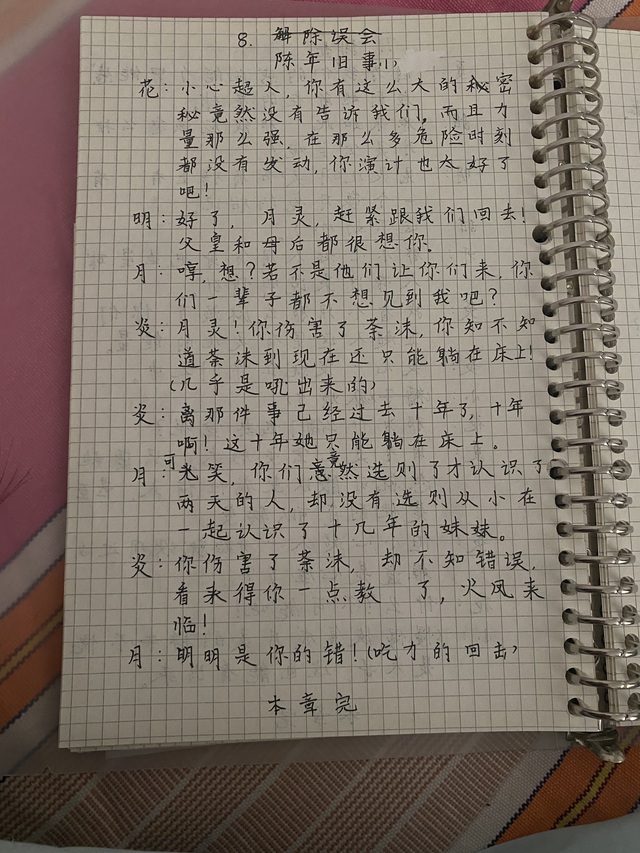 8. 解除误会
陈年旧事(1)
花：小心超人，你有这么大的秘密
秘竟然没有告诉我们，而且力
量那么强，在那么多危险时刻
都没有发动，你演计也太好了
吧！
明：好了，月灵，赶紧跟我们回去！
父皇和母后都很想你。
月：哼，想？若不是他们让你们来，你
们一辈子都不想见到我吧？
炎：月灵！你伤害了荼沫，你知不知
道荼沫到现在还只能躺在床上！
(几乎是吼出来的)
炎：离那件事已经过去十年了，十年
啊！这十年她只能躺在床上。
月：可笑，你们竟然选则了才认识了
两天的人，却没有选则从小在
一起认识了十几年的妹妹。
炎：你伤害了荼沫，却不知错误，
看来得你一点教 了，火凤来
临！
月：明明是你的错！(吃力的回击)
本章完